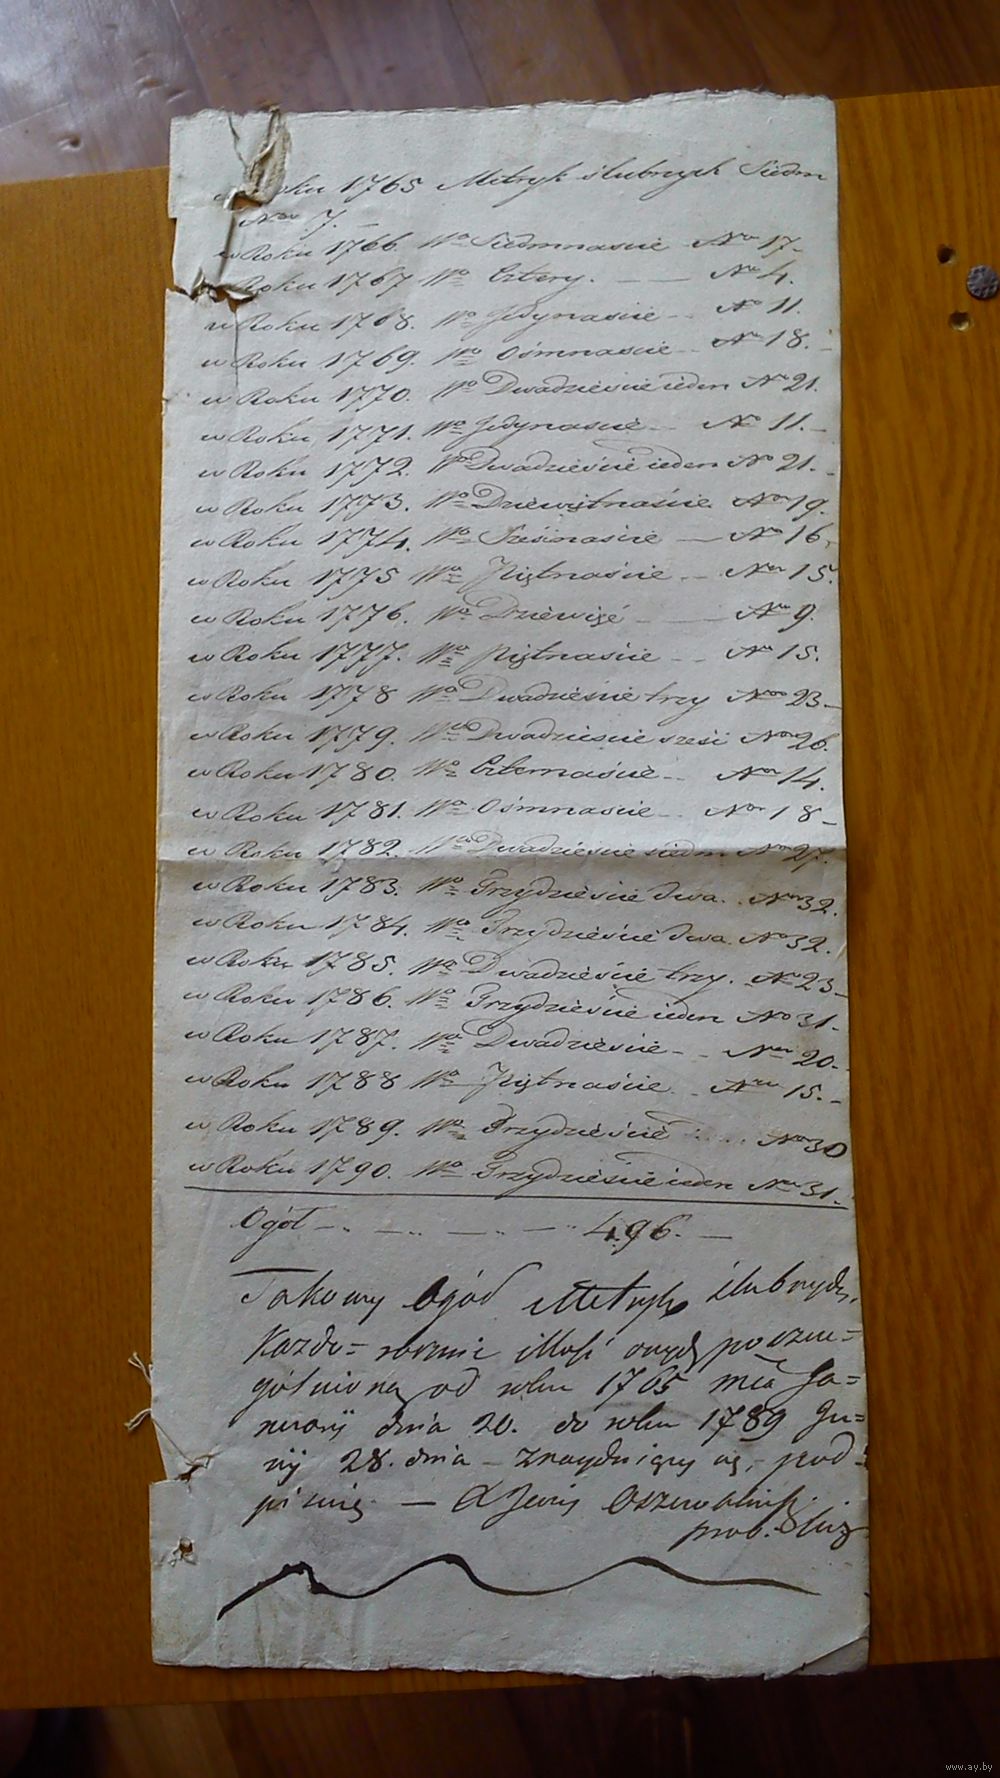 w Roku 1765 Metryk ślubnych Siedm
Nro 7. —
w Roku 1766. No Siedmnaście Nro 17-
w Roku 1767 No Cztery. — — Nro 4.
w Roku 1768. No Jedynaście - - No 11.
w Roku 1769. No Ośmnaście - - Nro 18. -
w Roku 1770. No Dwadzieście ieden No 21.
w Roku 1771. No Jedynaście - - No 11. -
w Roku 1772. No Dwadzieście ieden No 21. -
w Roku 1773. No Dziewiętnaście Nro 19.
w Roku 1774. No Sześnaście — No 16.
w Roku 1775 No Piętnaście - - Nro 15.
w Roku 1776. No Dziewięć - — Nro 9.
w Roku 1777. No Piętnaście - - Nro 15.
w Roku 1778 No Dwadzieście trzy Nro 23 -
w Roku 1779. No Dwadzieście sześć Nro 26.
w Roku 1780. No Czternaście - - Nro 14.
w Roku 1781. No Ośmnaście - - Nro 18 -
w Roku 1782. No Dwadzieście siedm Nro 27.
w Roku 1783. No Trzydzieście dwa. Nro 32.
w Roku 1784. No Trzydzieście dwa. No 32.
w Roku 1785. No Dwadzieście trzy. - No 23 -
w Roku 1786. No Trzydzieście ieden No 31 -
w Roku 1787. No Dwadzieście - - Nro 20. -
w Roku 1788 No Piętnaście - - Nro 15. -
w Roku 1789. No Trzydzieście . . . . Nro 30
w Roku 1790. No Trzydzieście ieden Nro 31.
Ogół — .. — .. — .. — .. 496. —
Takowy Ogół Metryk ślubnych,
Każdo= rocznie illość onych poszcze=
gólniona od roku 1765 mca Ja=
nuarij dnia 20. do roku 1789 Ju=
nij 28. dnia — znaydujący się, — pod=
pisuię. — X Jerzy
prob.
www.ay.by